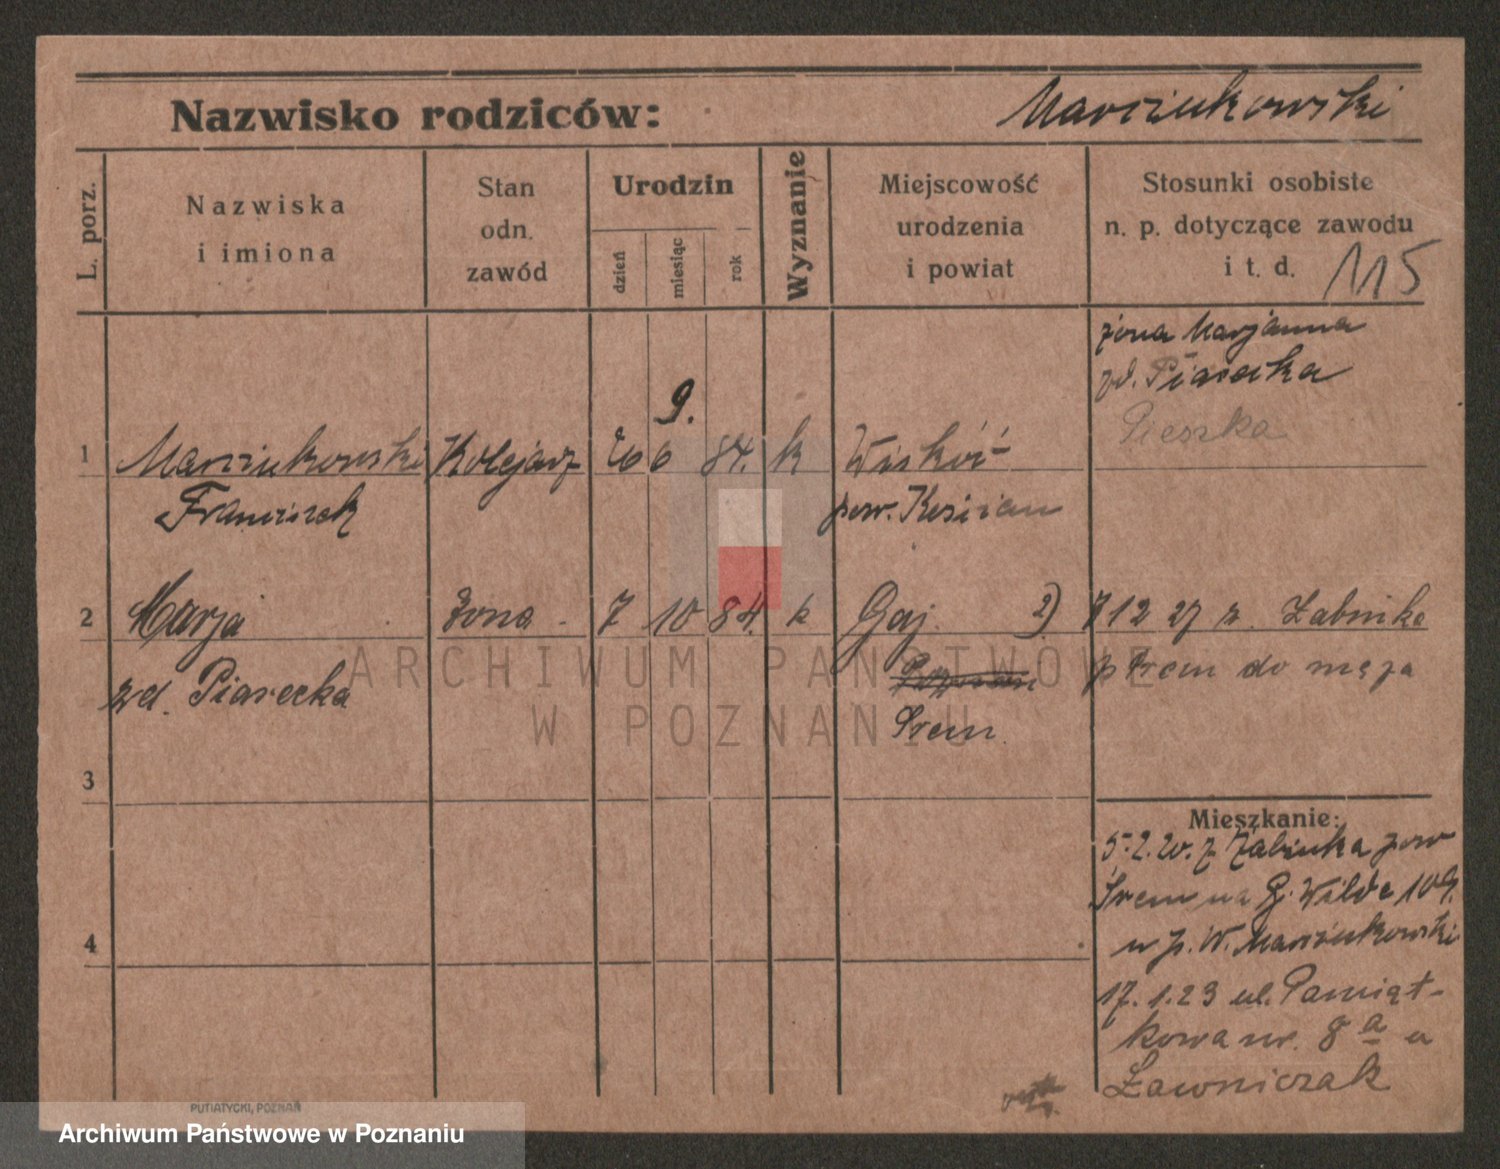 Nazwisko rodziców: Marciukowski
L. porz.
Nazwiska
i imiona
Stan
odn.
zawód
Urodzin
dzień
miesiąc
rok
Wyznanie
Miejscowość
urodzenia
i powiat
Stosunki osobiste
n. p. dotyczące zawodu
i t. d. 115
żona Marjanna
zd. Piasecka
Pieszka
9.
1 Marciukowski Kolejarz 26 6 84. k
Franciszek pow. Kościan
2 Marja żona 7 10 84. k Gaj 2) 7 12 27 z. Żabinka
zd. Piasecka Poznań p Śrem do męża
Śrem
3
Mieszkanie:
5.2.20. z Żabinka pow
Śrem na G. Wilde 109.
u p. W. Marciukowski
17.1.23 ul. Pamiąt-
kowa nr. 8a u
Ławniczak
4
PUTIATYCKI, POZNAŃ
ARCHIWUM PAŃSTWOWE
W POZNANIU
Archiwum Państwowe w Poznaniu